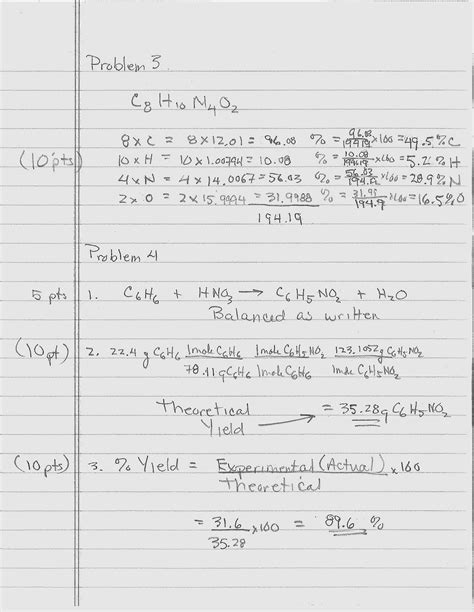 Problem 3.
C8 H10 N4 O2
8 x C = 8 x 12.01 = 96.08 % = 96.08/194.19 x100 = 49.5% C
(10 pts) 10 x H = 10 x 1.00794 = 10.08 % = 10.08/194.19 x100 = 5.2% H
4 x N = 4 x 14.0067 = 56.03 % = 56.03/194.19 x100 = 28.9% N
2 x O = 2 x 15.9994 = 31.9988 % = 31.99/194.9 x100 = 16.5% O
194.19
Problem 4
5 pts 1. C6H6 + HNO3 → C6H5NO2 + H2O
Balanced as written
(10 pt) 2. 22.4 g C6H6 1mole C6H6 1mole C6H5NO2 123.1052 g C6H5NO2
78.11 g C6H6 1mole C6H6 1mole C6H5NO2
Theoretical Yield → = 35.28 g C6H5NO2
(10 pts) 3. % Yield = Experimental (Actual) x 100
Theoretical
= 31.6 x100 = 89.6 %
35.28